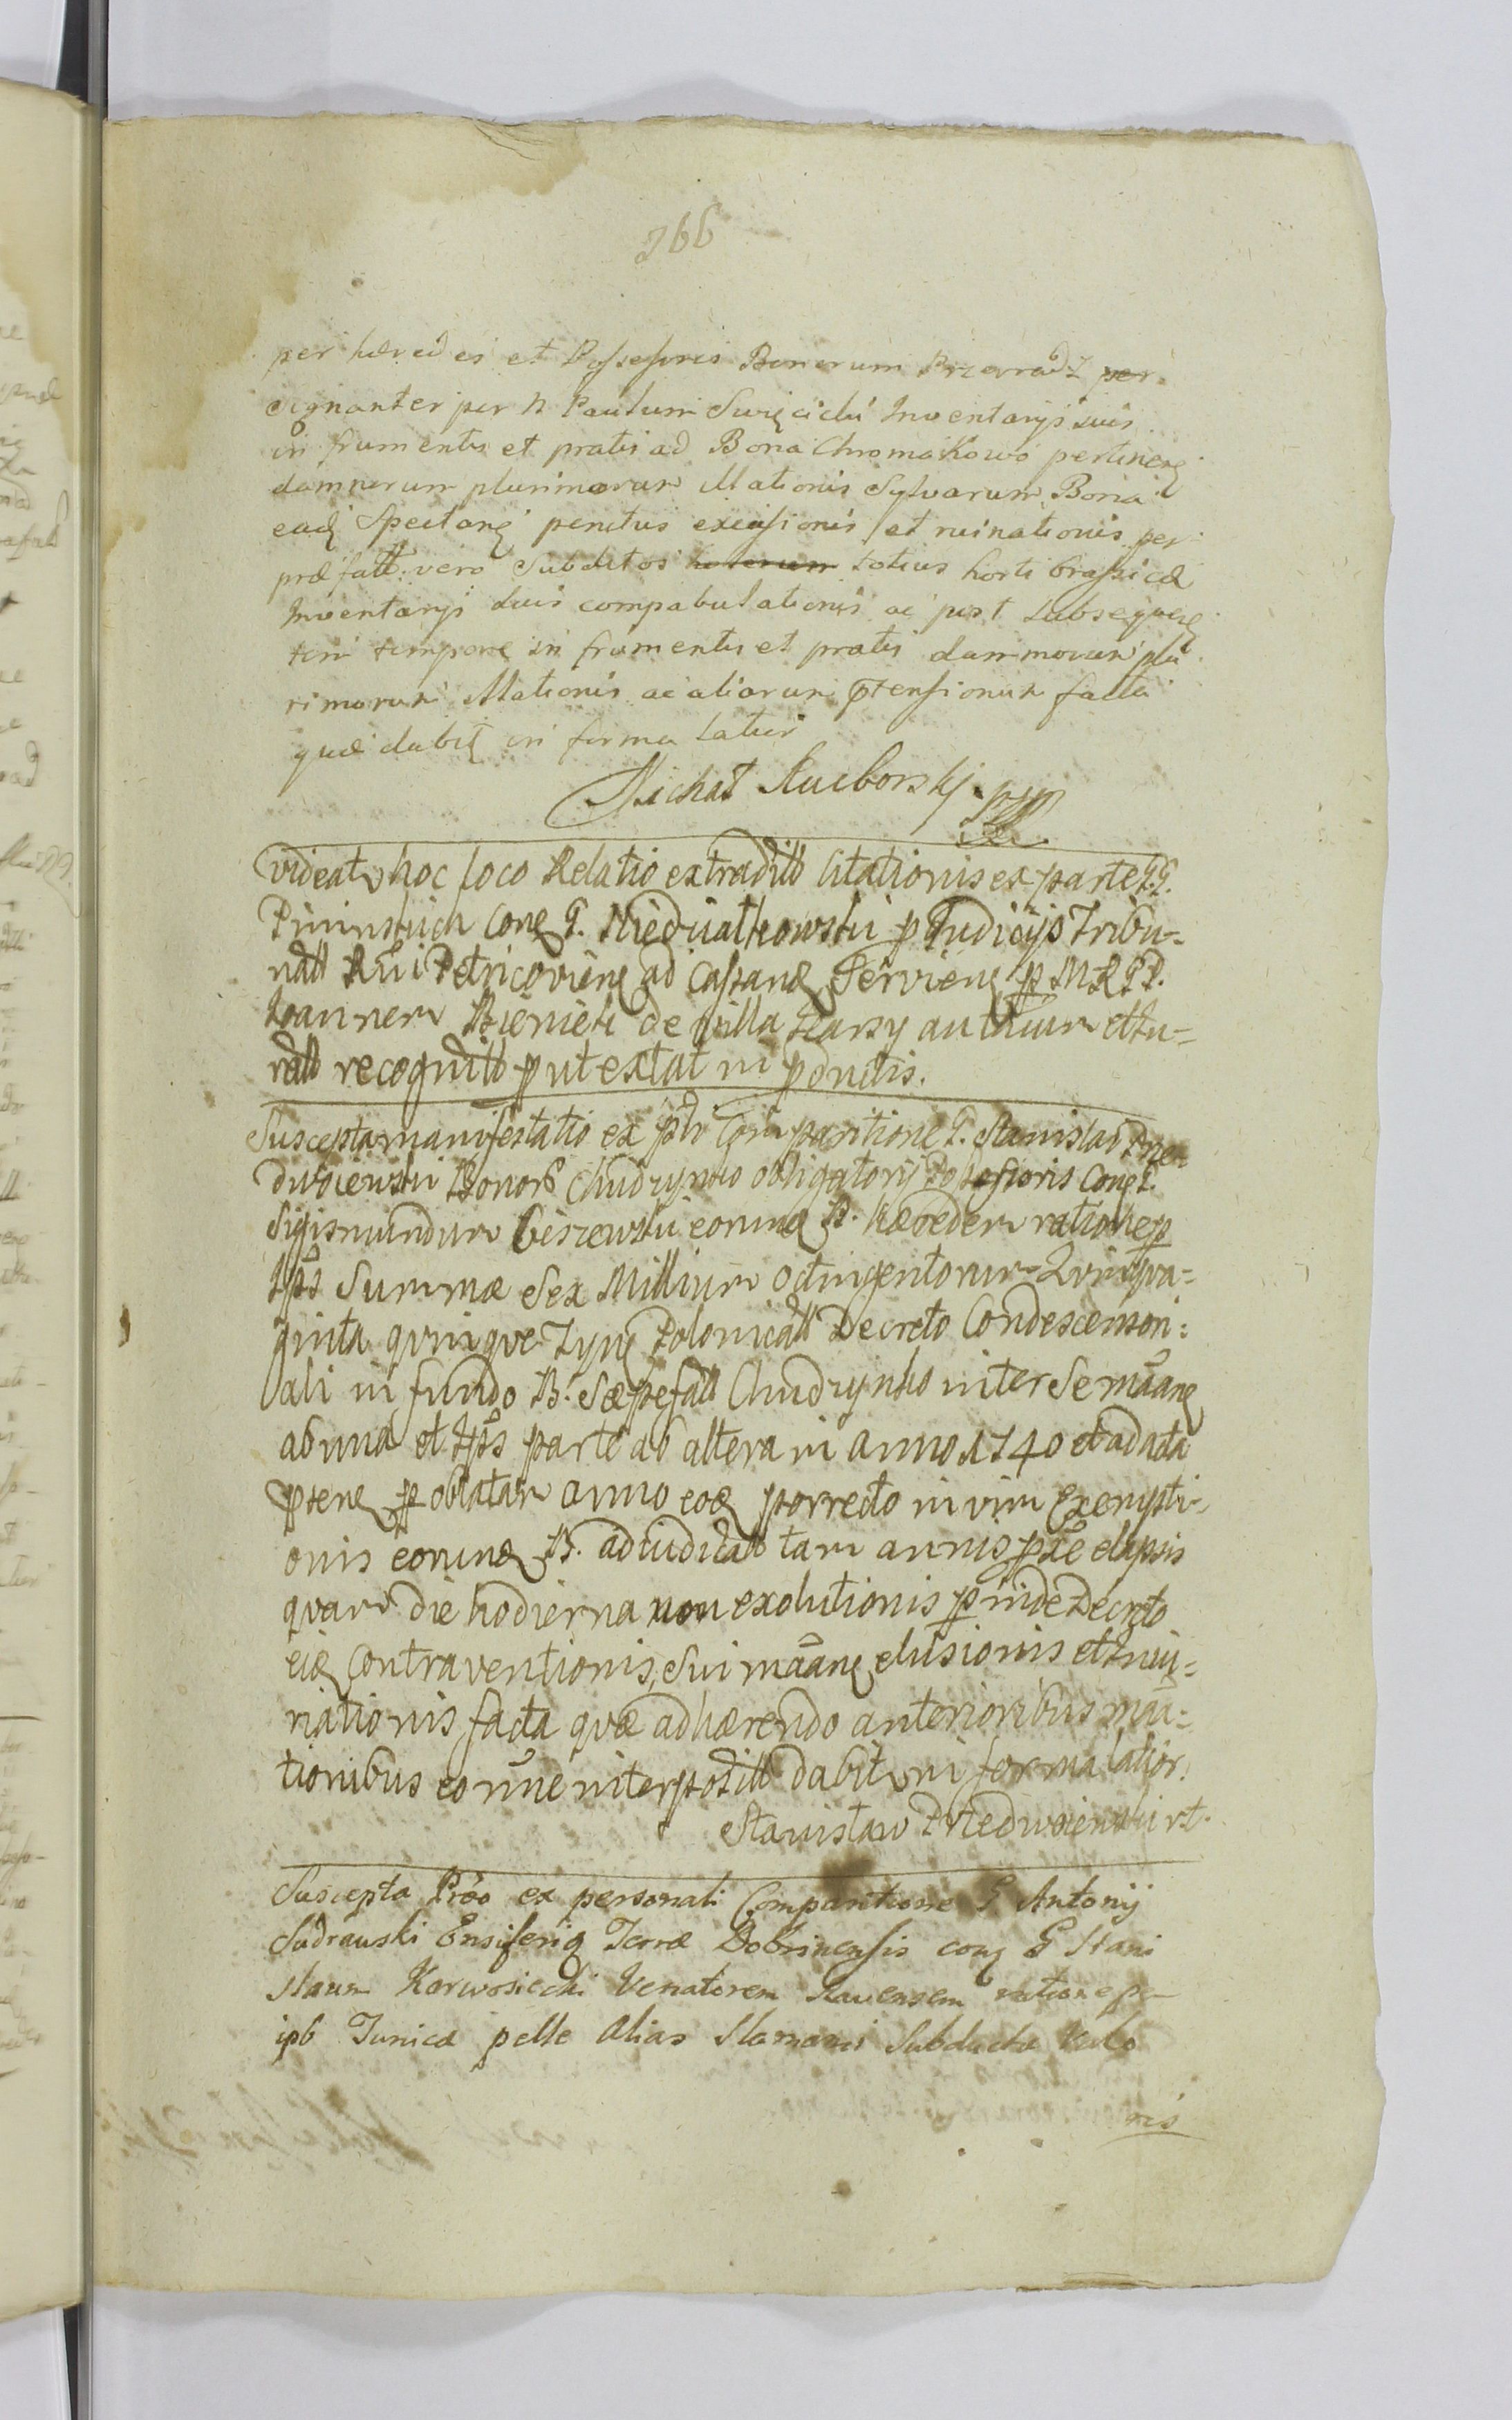 766
per hæredes et Possessoris Bonorum Przeradz per
signanter per N Paulum Swięcicki Inventarys suis
in frumentis et pratis ad Bona Chromakowo pertinenę
damnorum plurimorum Illationis Sylvarum Bona
eadę Spectanę penitus excisionis et ruinationis per
præfatt vero Subditos hoterum totius horti brassicæ
Inventarys suis compabulationis ac post subsequenę
tem tempore in frumentis et pratis damnorum plu
rimorum Illationis ac aliarum ptensionum facta
quæ dabit in forma latiori
Michał Kuiborski mpp
Videat hoc loco Relatio extraditt Citationis ex parte G.G.
Pninskich conę G. Niedziałkowski p Judicijs Tribu-
natt Rñi Petricovienę ad Cassanđ Servienę p M.R.G.D.
Joannem Bieniek de villa Karsy authum ettu-
ratt recognitt p ut extat in p ductis.
Suscepta manifestatio ex pli Comparitione G. Stanislai Przed
dwoiewski Bonorō Chudzynko obligatorij Possessoris Conę G.
Sigismundum Ciszewski eorunđ B. Hæredem ratione p
Ipš Summæ Sex Millium octingentorum Quinqua-
ginta quinque Tynę Polonicatt Decreto Condescension:
ali in fundo B. Sæpefatt Chudzynko inter Se mãanę
ab una et Ipš parte ab altera in Anno 1740 et ad acta
ptenę p oblatam anno eođ porrecto in vim Exempti-
onis eorunđ B. adiudicatt tam annis ptæ elapsis
quam die hodierna non exolutionis p inde Decreto
eiđ Contraventionis, Sui mãanę elusionis et Iniu-
riationis facta quæ adhærendo anterioribus mãi-
tionibus eorunę interpositt dabit in forma latior.
Stanisław Przedwoiewski rt.
Suscepta Prõo ex personali Comparitione G Antonij
Sudrawski Ensiferiđ Terræ Dobrinensis conę G Stani
slaum Karwosiecki Venatorem Ravensem ratione p
ipb Tunica pelle alias Slamami Subducta Valo
ris